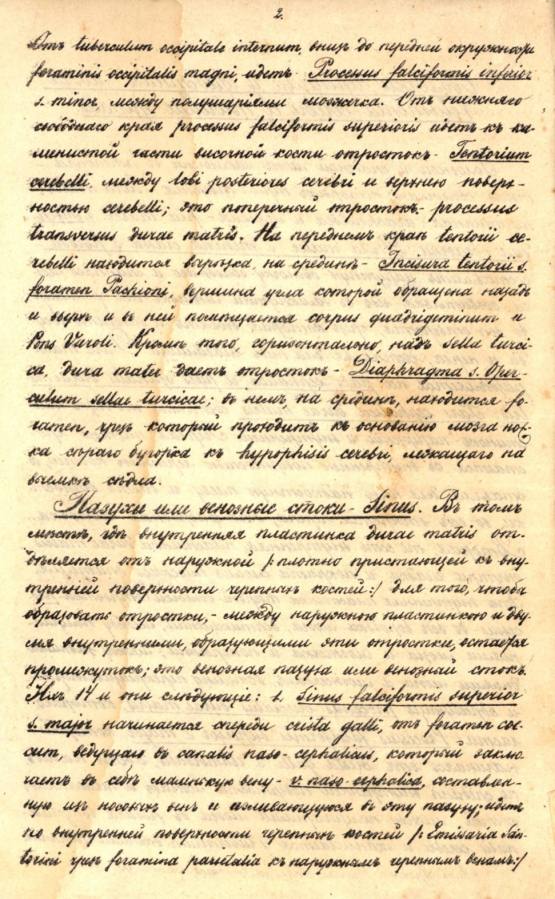 2.
Отъ tuberculum occipitale internum, внизъ до передней окружности
foraminis occipitalis magni, идетъ - Processus falciformis inferior
s. minor, между полушаріями мозжечка. Отъ нижняго
свободнаго края processus falciformis superioris идетъ къ ка-
менистой части височной кости отростокъ - Tentorium
cerebelli, между lobi posteriores cerebri и верхнею поверх-
ностью cerebelli; это поперечный отростокъ - processus
transversus durae matris. На переднемъ краѣ tentorii ce-
rebelli находится вырѣзка, на срединѣ - Incisura tentorii s.
foramen Pachioni, вершина угла которой обращена назадъ
и вверхъ и въ ней помѣщается corpus quadrigeminum и
Pons Varoli. Кромѣ того, горизонтально, надъ sella turci-
ca, dura mater даетъ отростокъ - Diaphragma s. Oper-
culum sellae turcicae; въ немъ, на срединѣ, находится fo-
ramen, чрезъ который проходитъ къ основанію мозга нож-
ка сѣраго бугорка къ hypophisis cerebri, лежащаго на
выемкѣ сѣдла.
Пазухи или венозные стоки - Sinus. Въ томъ
мѣстѣ, гдѣ внутренняя пластинка durae matris от-
дѣляется отъ наружной /:плотно пристающей къ вну-
тренней поверхности черепныхъ костей:/ для того, чтобъ
образовать отростки, - между наружною пластинкою и дву-
мя внутренними, образующими эти отростки, остается
промежутокъ; это венозная пазуха или венозный стокъ.
Ихъ 14 и они слѣдующіе: 1. Sinus falciformis superior
s. major начинается спереди crista galli, отъ foramen coe-
cum, ведущаго въ canalis naso-cephalicus, который заклю-
чаетъ въ себѣ маленькую вену - v. naso-cephalica, составлен-
ную изъ носовыхъ венъ и изливающуюся въ эту пазуху; идетъ
по внутренней поверхности черепныхъ костей /: Emissaria San-
torini чрезъ foramina parietalia къ наружнымъ черепнымъ венамъ:/